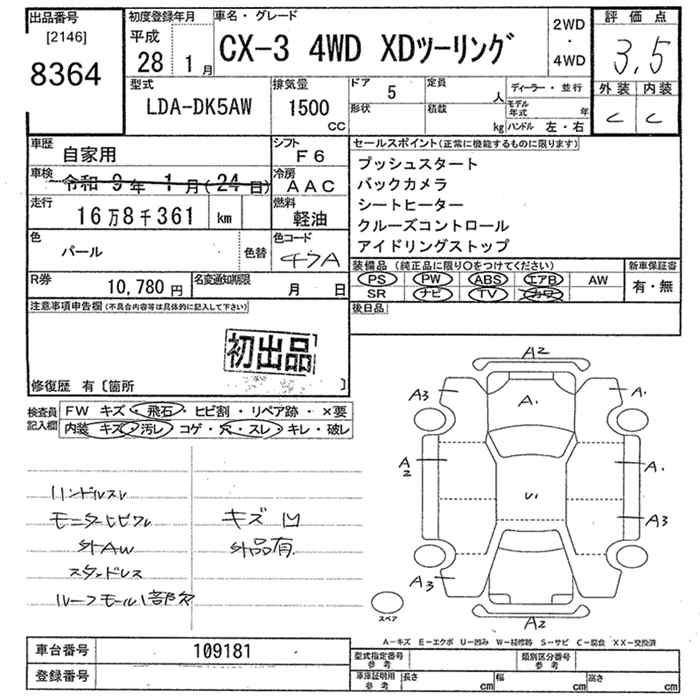 出品番号
[2146]
8364
初度登録年月
平成
28 1月
車名・グレード
CX-3 4WD XDツーリング
2WD
・
4WD
評価点
3,5
外装 内装
C C
型式
LDA-DK5AW
排気量
1500
CC
ドア 5 定員 人
形状 積載 kg
ディーラー・並行
モデル年式 年
ハンドル 左・右
車歴 自家用
シフト F6
車検 令和 9年 1月(24日)
冷房 AAC
走行 16万8千361 km
燃料 軽油
色 パール 色替
色コード 47A
R券 10,780円
名変通知期限 月 日
セールスポイント(正常に機能するものに限ります)
プッシュスタート
バックカメラ
シートヒーター
クルーズコントロール
アイドリングストップ
装備品 (純正品に限り○をつけてください)
PS PW ABS エアB AW
SR ナビ TV カワ
新車保証書
有・無
後日品
注意事項申告欄(不具合内容等は具体的に記入して下さい)
初出品
修復歴 有〔箇所 〕
検査員記入欄
FW キズ・飛石・ヒビ割・リペア跡・×要
内装 キズ・汚レ・コゲ・穴・スレ・キレ・破レ
ハンドルスレ
モニターヒビワレ キズ 凹
外AW 外品有
スタッドレス
ルーフモール1部欠
A2
A3 A1 A1
A2 A1
U1
A3
A3
A2
スペア
A-キズ E-エクボ U-凹み W-補修跡 S-サビ C-腐食 XX-交換済
車台番号 109181
登録番号
型式指定番号
参考
類別区分番号
参考
車庫証明用
参考
長さ cm 幅 cm 高さ cm